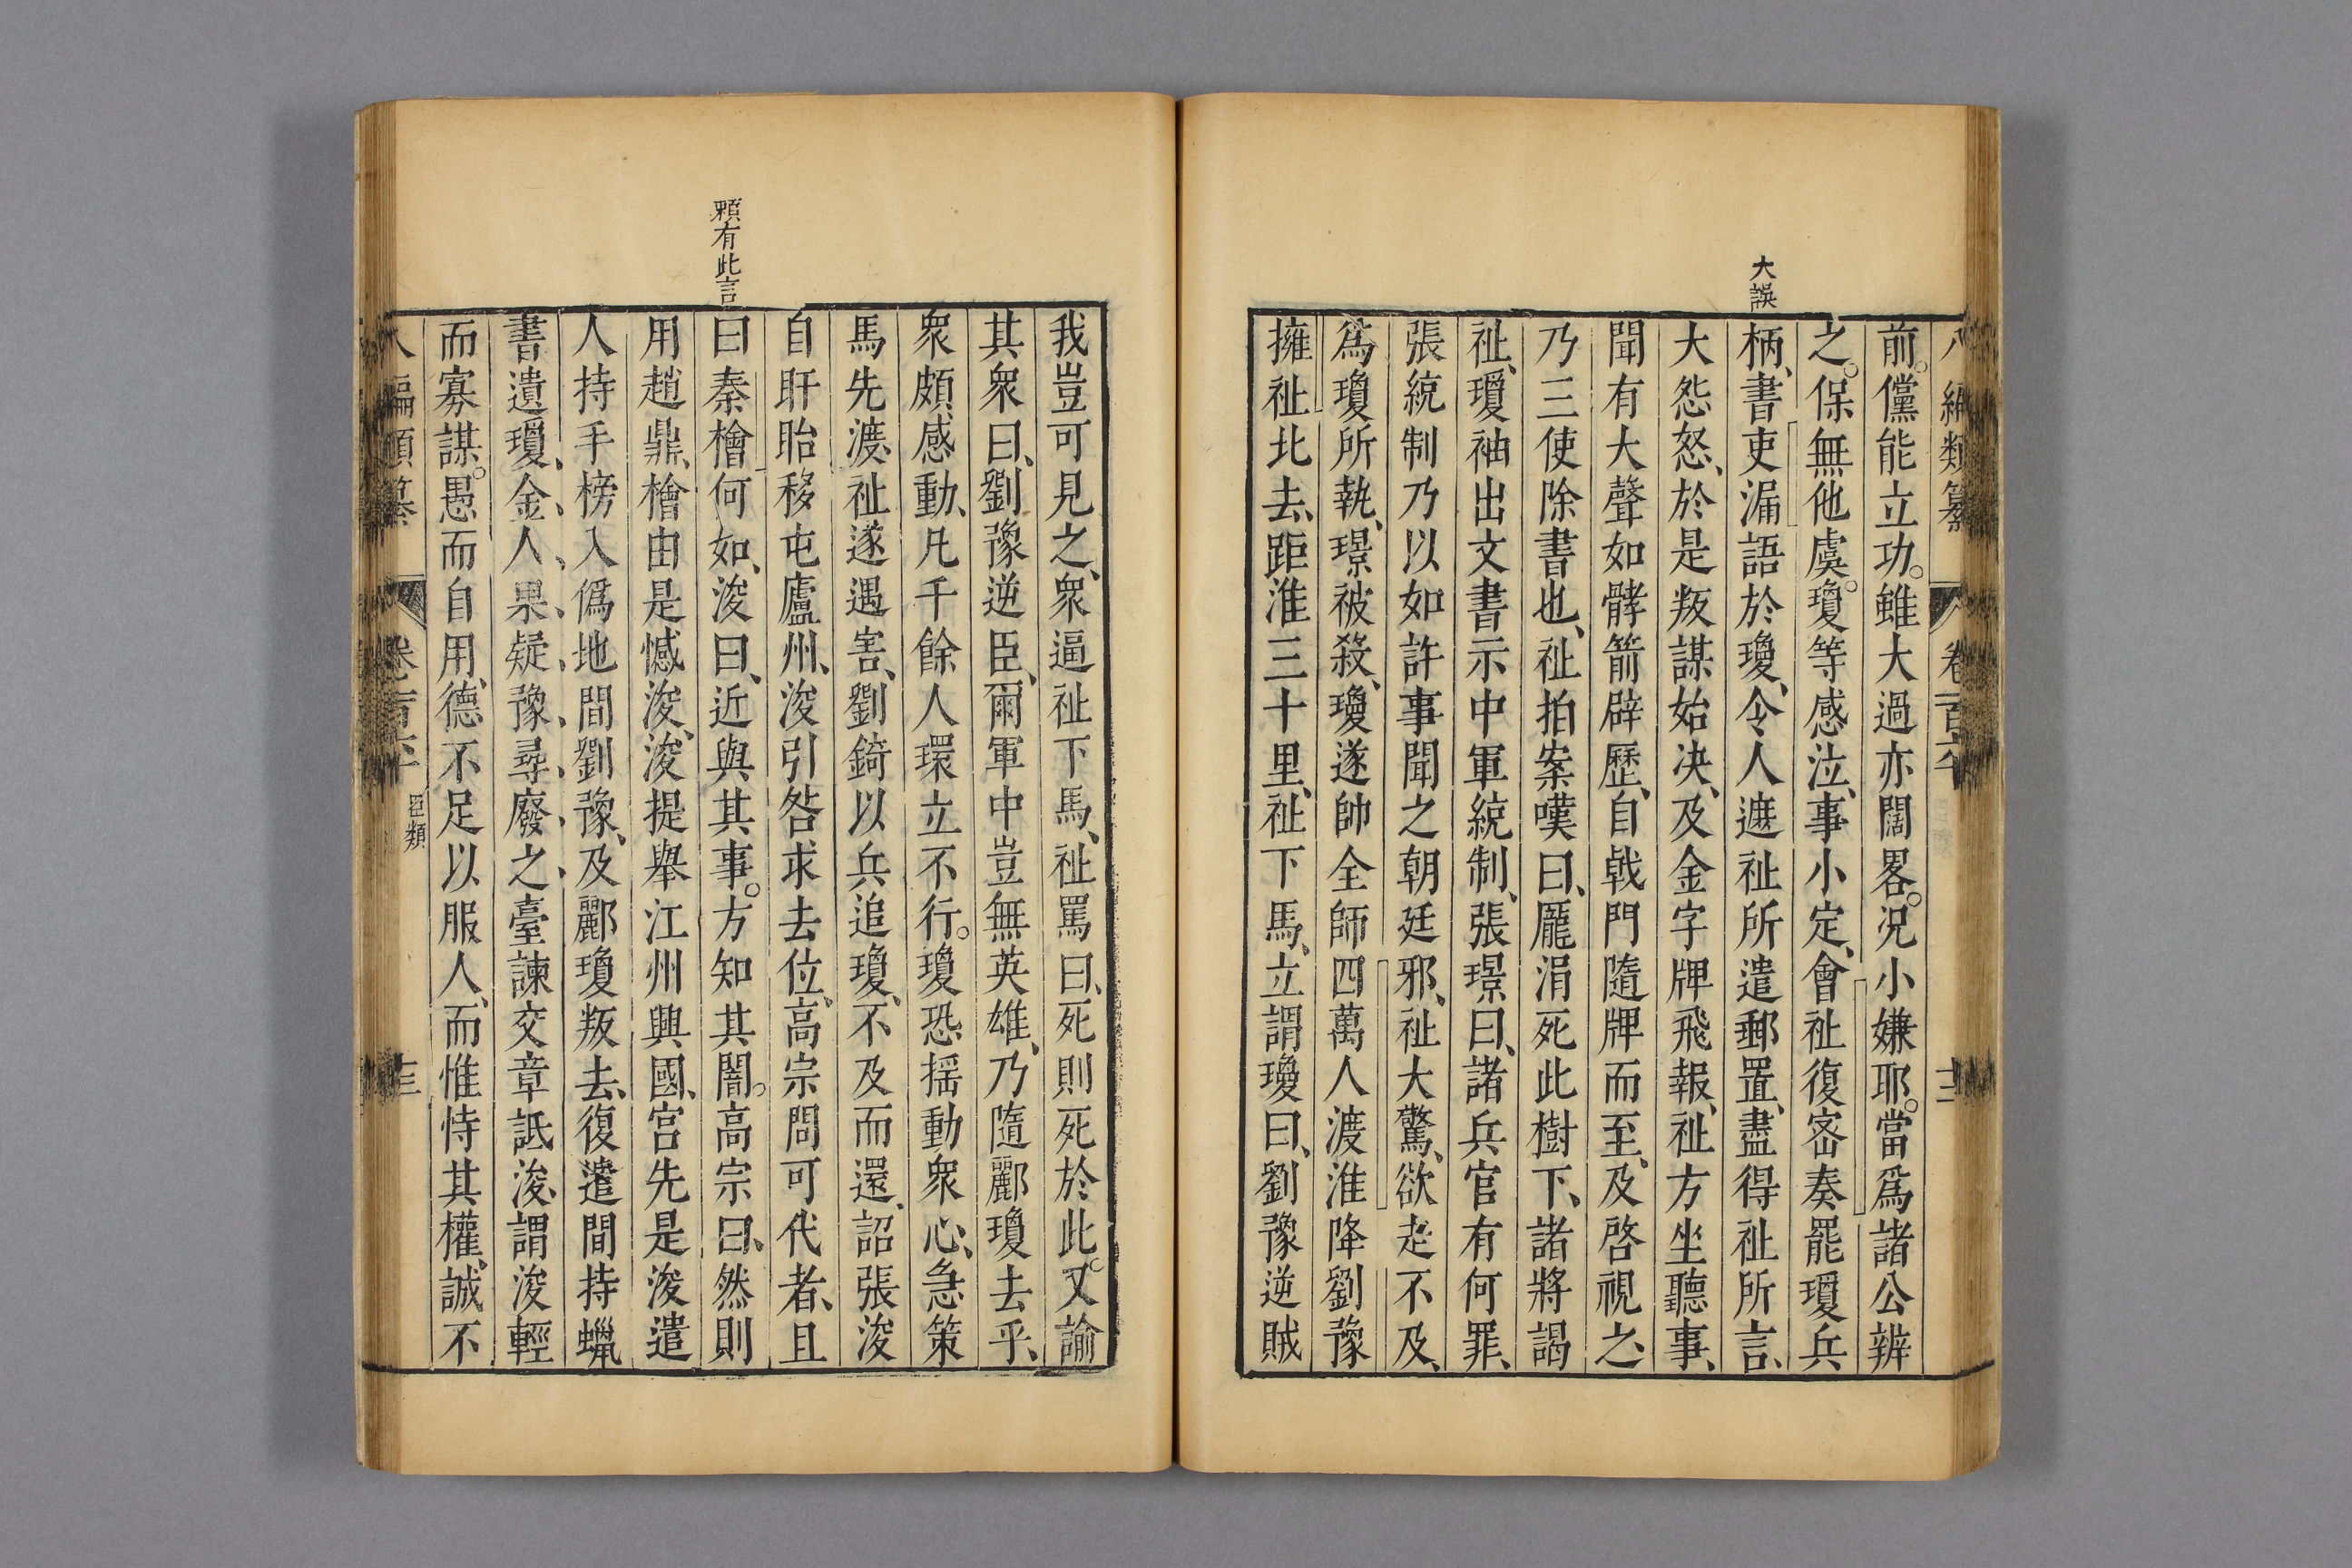 大誤
前。儻能立功。雖大過亦闊畧。況小嫌耶。當爲諸公辨
之。保無他虞。瓊等感泣、事小定、會祉復密奏罷瓊兵
柄、書吏漏語於瓊、令人遮祉所遣郵置、盡得祉所言、
大怨怒、於是叛謀始决、及金字牌飛報、祉方坐聽事、
聞有大聲如髇箭辟歷、自戟門隨牌而至、及啓視之、
乃三使除書也、祉拍案嘆曰、龎涓死此樹下、諸將謁
祉、瓊袖出文書示中軍統制、張璟曰、諸兵官有何罪、
張統制乃以如許事聞之朝廷邪、祉大驚、欲走不及、
爲瓊所執、璟被殺、瓊遂帥全師四萬人渡淮降劉豫
擁祉北去、距淮三十里、祉下馬、立謂瓊曰、劉豫逆賊
頼有此言
我豈可見之、衆逼祉下馬、祉罵曰、死則死於此。又諭
其衆曰、劉豫逆臣、爾軍中豈無英雄、乃隨酈瓊去乎、
衆頗感動、凡千餘人環立不行。瓊恐揺動衆心、急策
馬先渡、祉遂遇害、劉錡以兵追瓊、不及而還、詔張浚
自盱眙移屯廬州、浚引咎求去位、高宗問可代者、且
曰秦檜何如、浚曰、近與其事。方知其闇。高宗曰、然則
用趙鼎、檜由是憾浚、浚提舉江州興國宮、先是浚遣
人持手榜入僞地間劉豫、及酈瓊叛去、復遣間持蠟
書遺瓊、金、人、果、疑、豫、尋、廢、之、臺諫交章詆浚、謂浚輕
而寡謀。愚而自用、德不足以服人、而惟恃其權、誠不
臣類